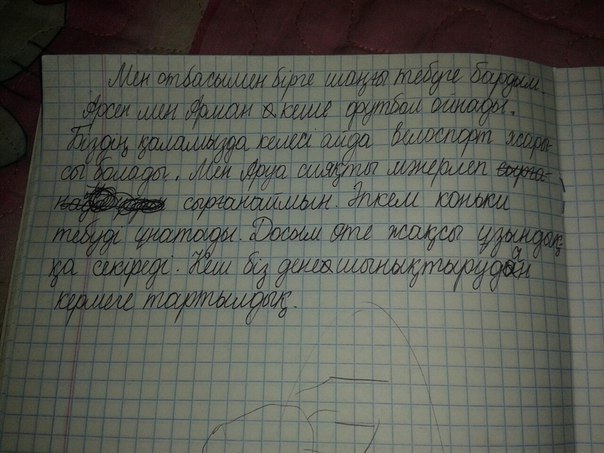 Мен отбасыммен бірге шаңғы тебуге бардым.
Арсен мен Арман кеше футбол ойнады.
Біздің қаламызда келесі айда велоспорт жары-
сы болады. Мен Аруа сияқты мәнерлеп
сырғанаймын. Әпкем коньки
тебуді ұнатады. Досым өте жақсы ұзындық-
қа секіреді. Кеш біз дене шынықтырудан
кермеге тартылдық.